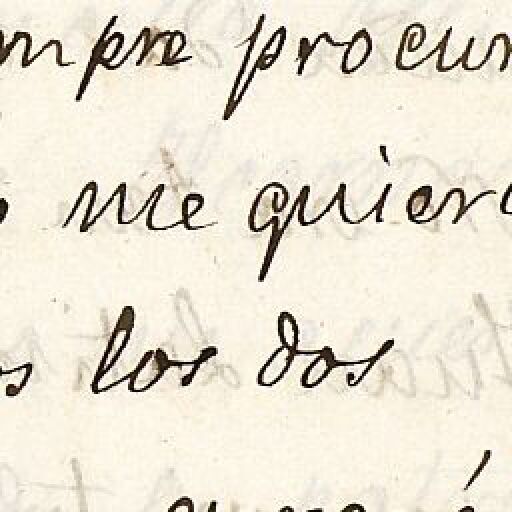 mpre procur
me quier
os los dos